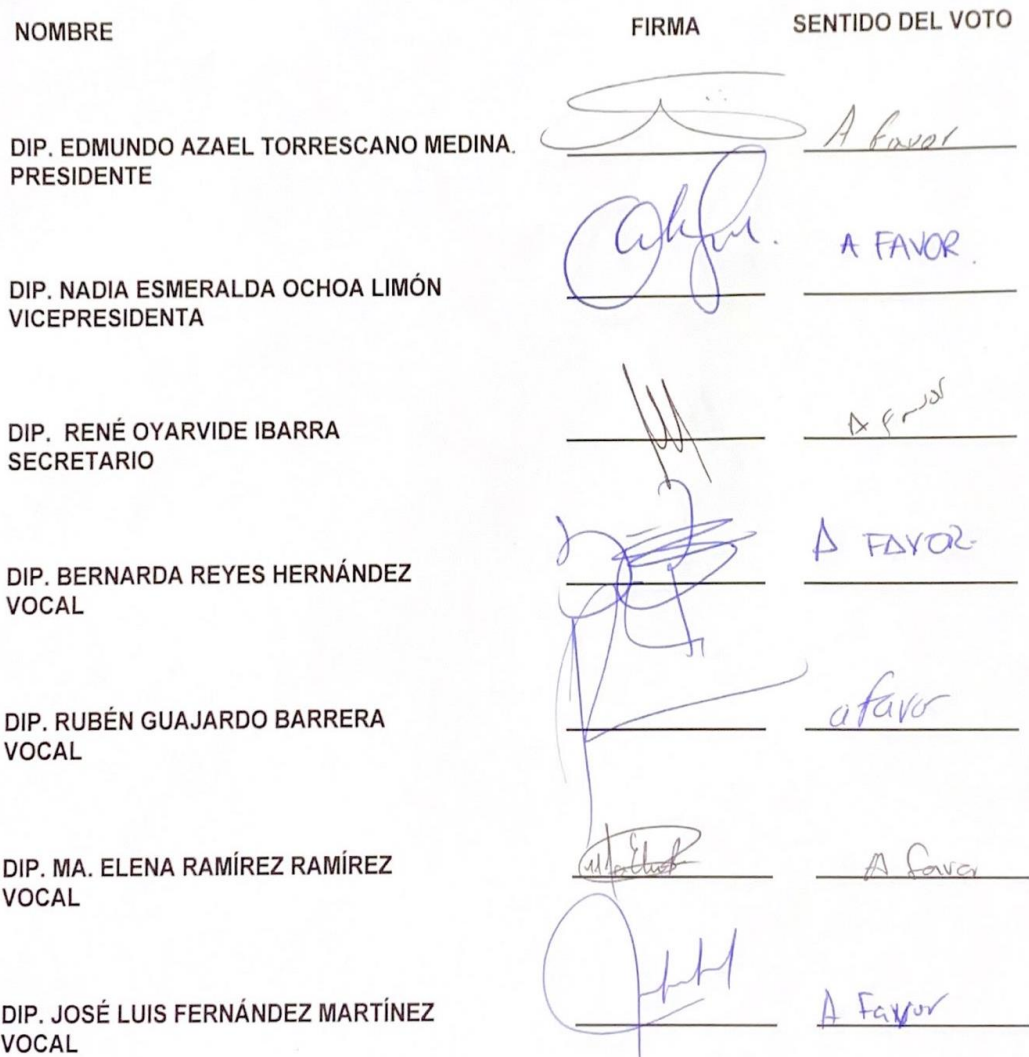 NOMBRE FIRMA SENTIDO DEL VOTO
DIP. EDMUNDO AZAEL TORRESCANO MEDINA. A favor
PRESIDENTE
A FAVOR.
DIP. NADIA ESMERALDA OCHOA LIMÓN
VICEPRESIDENTA
DIP. RENÉ OYARVIDE IBARRA A favor
SECRETARIO
A FAVOR
DIP. BERNARDA REYES HERNÁNDEZ
VOCAL
DIP. RUBÉN GUAJARDO BARRERA a favor
VOCAL
DIP. MA. ELENA RAMÍREZ RAMÍREZ A favor
VOCAL
DIP. JOSÉ LUIS FERNÁNDEZ MARTÍNEZ A Favor
VOCAL